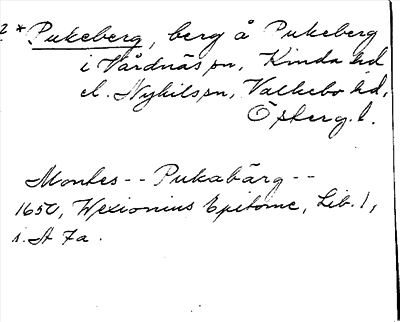 2 * Pukeberg, berg å Pukeberg
i Vårdnäs sn, Kinda hd
el. Nykils sn, Valkebo hd,
Östergl.
Montes -- Pukabärg --
1650, Wexionius Epitome, Lib. 1,